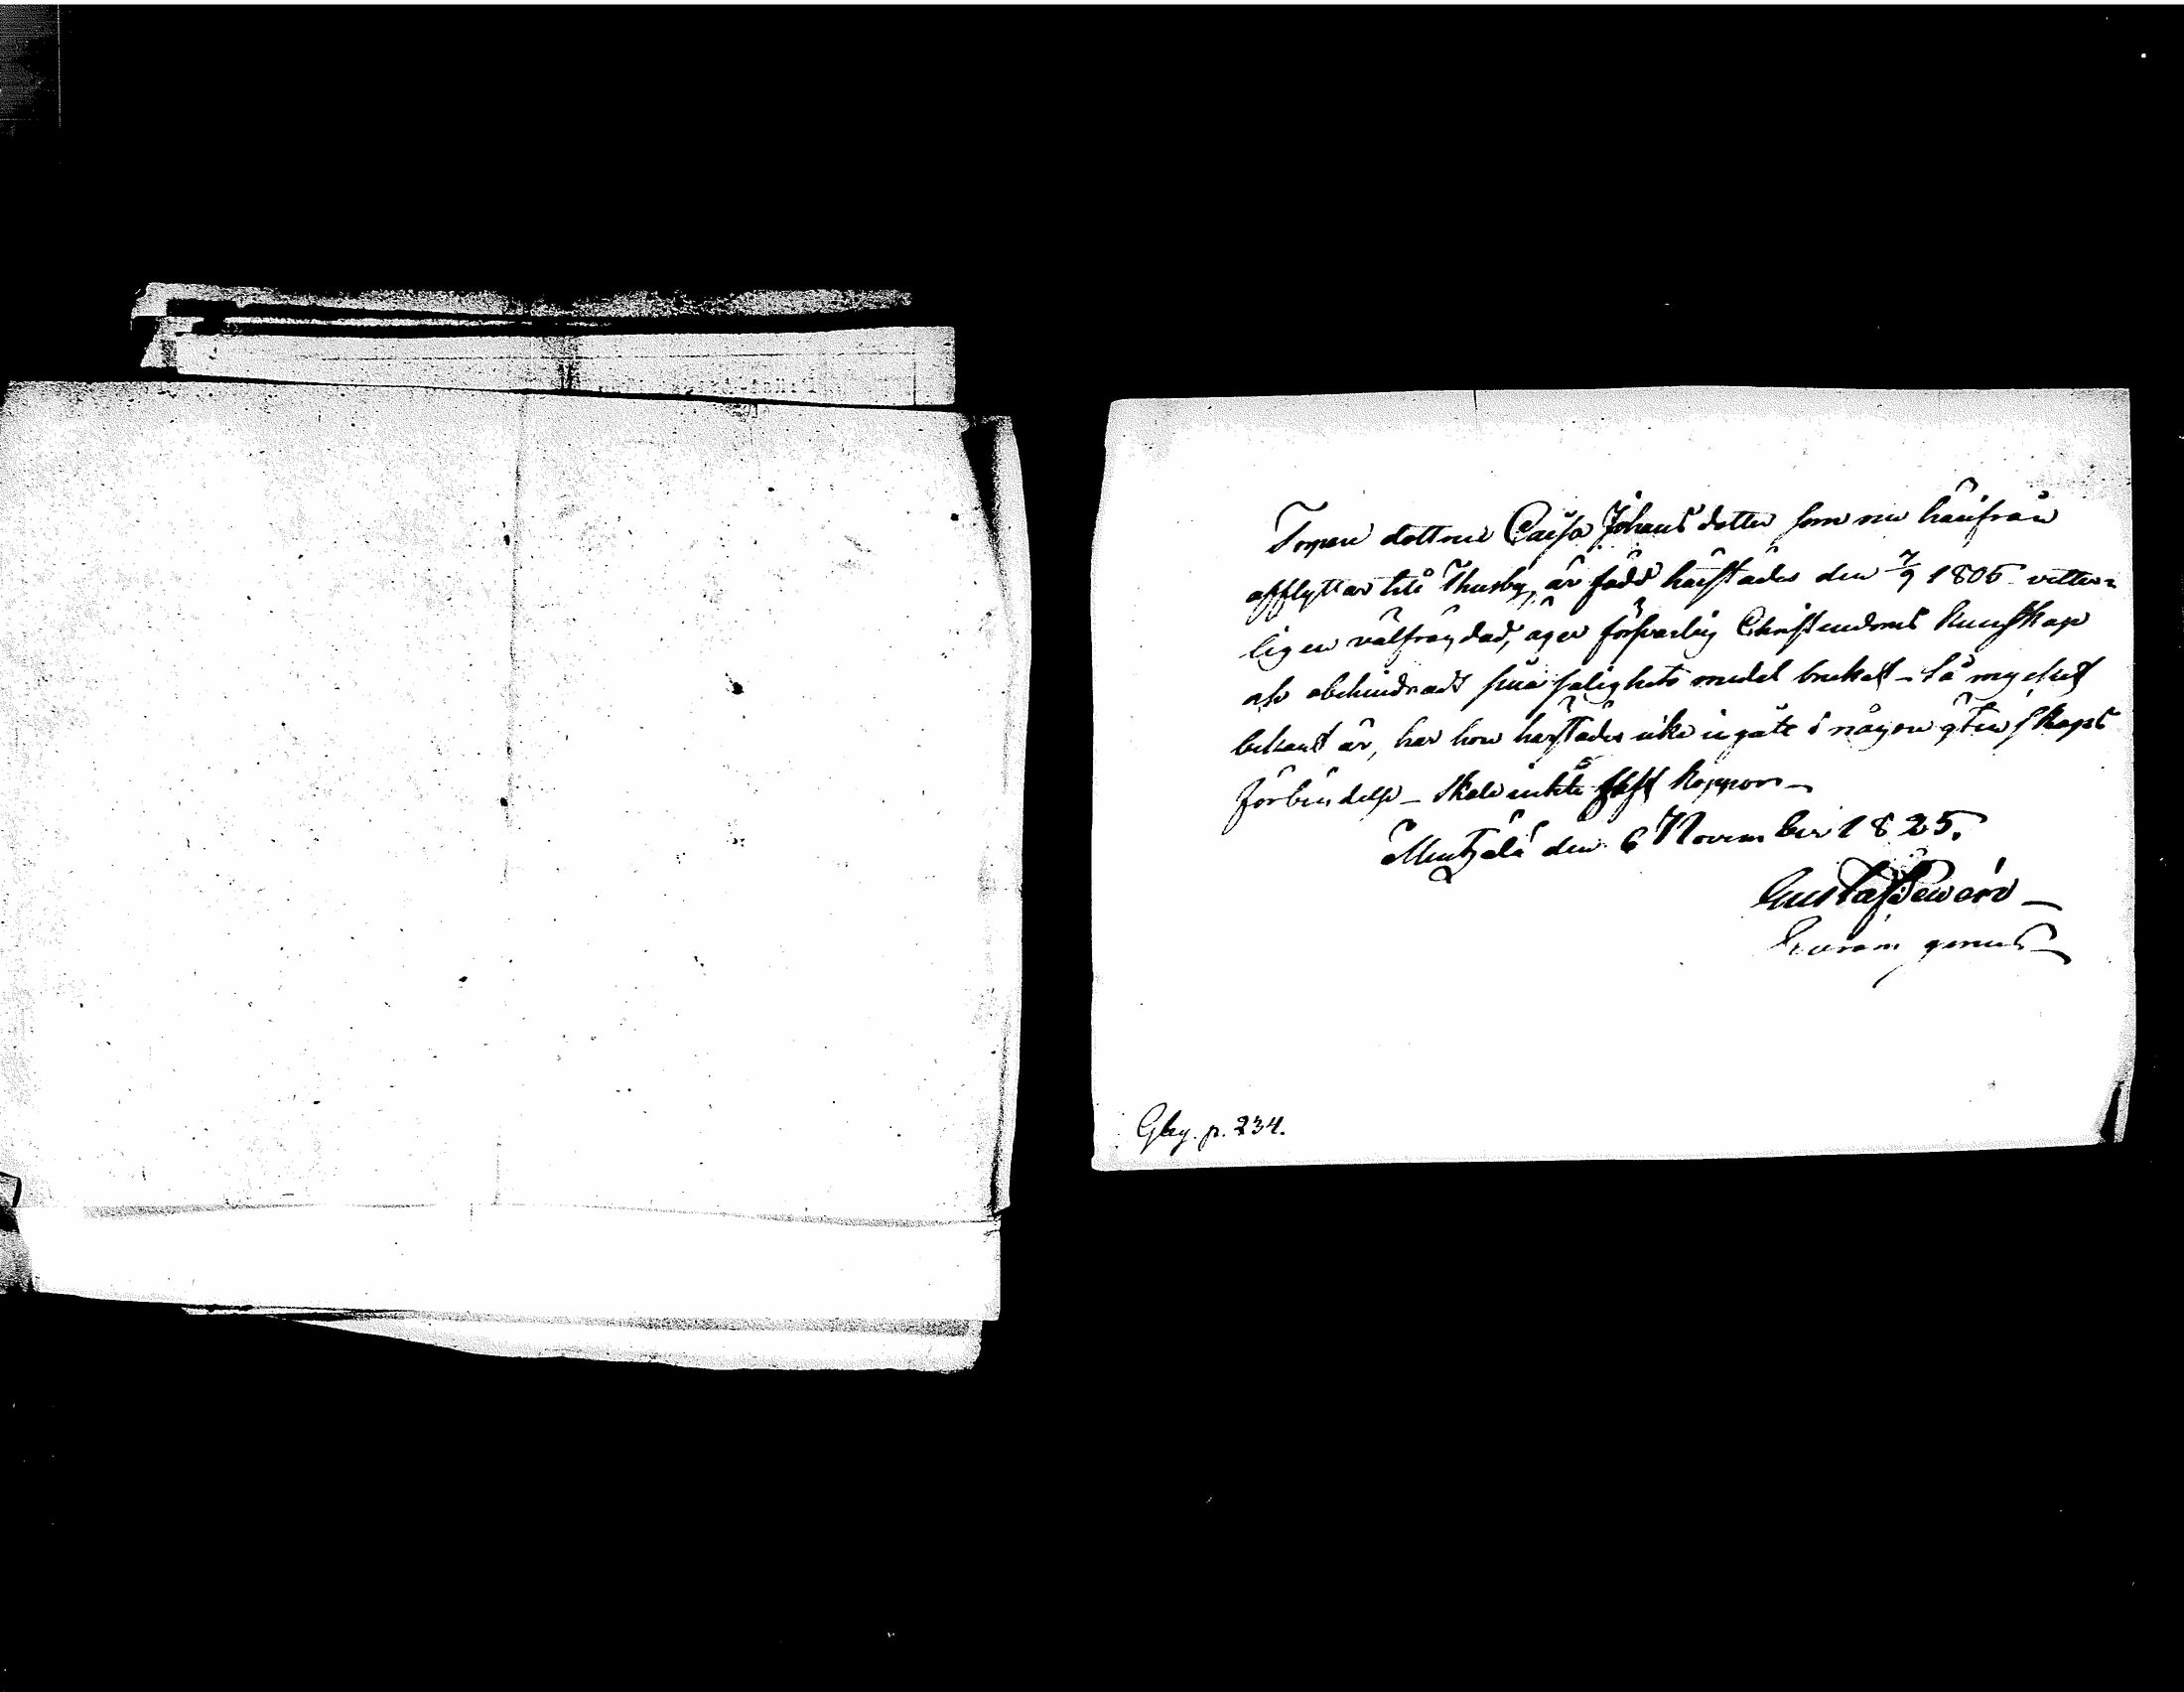 Torpare dottren Caisa Johans dotter som nu härifrån
afflyttar till Thusby, är född härstädes den 7/9 1805 vitter=
ligen välfrägdad, äger försvarlig Christendoms kunskap
och obehindradt sina salighets medel brukat – Så mycket
bekant är, har hon härstädes icke ingått i någon ägtenskaps
förbindelse – skall enkelt haft koppor –
Mentzälä den 6 November 1825.
Gustaf
Gby. p. 234.